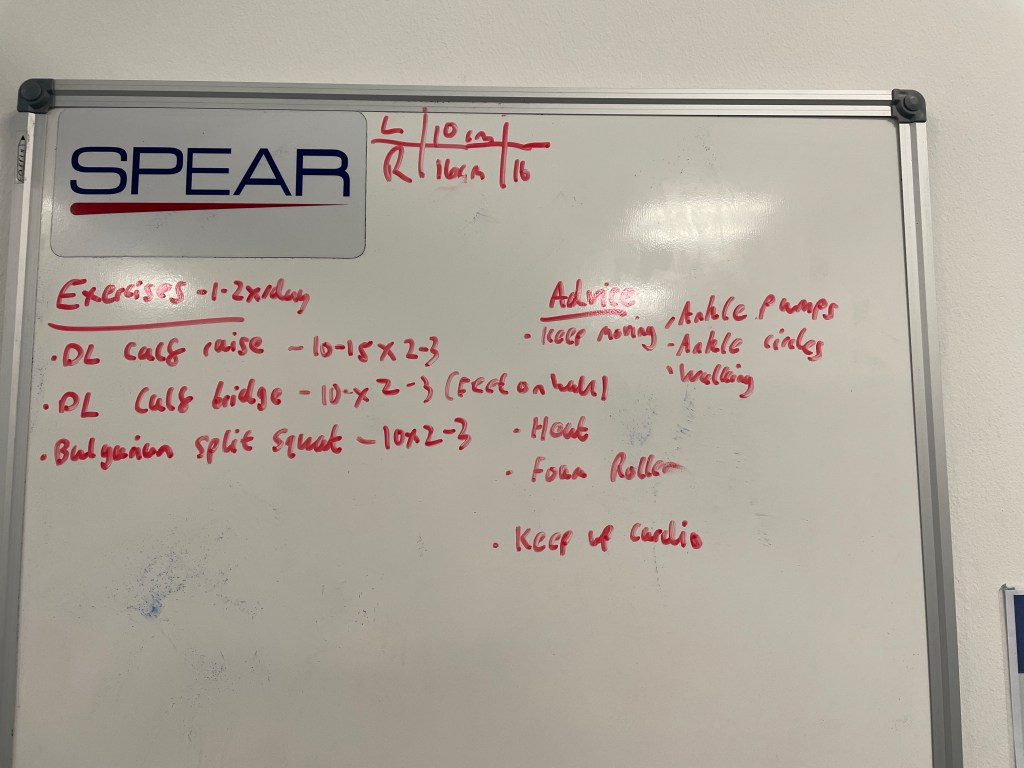 SPEAR
L | 10 cm |
R | 16cm | 16
Exercises - 1-2x/day
• DL Calf raise - 10-15 x 2-3
• DL Calf bridge - 10-x 2-3 (Feet on wall)
• Bulgarian split squat - 10x2-3
Advice
• Keep moving
, Ankle pumps
- Ankle circles
• Walking
• Heat
• Foam Roller
• Keep up cardio